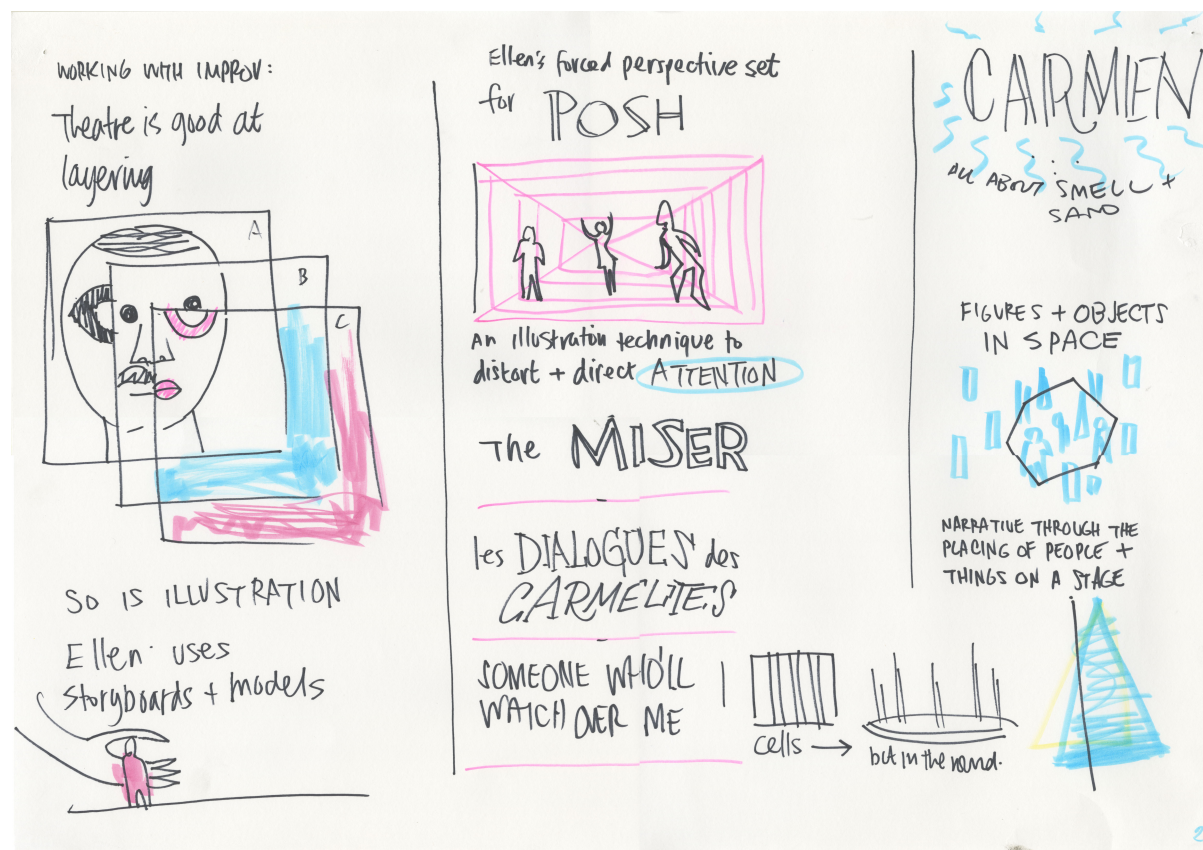 WORKING WITH IMPROV:
Theatre is good at
layering
A
B
C
SO IS ILLUSTRATION
Ellen uses
storyboards + models
Ellen's forced perspective set
for POSH
An illustration technique to
distort + direct ATTENTION
The MISER
les DIALOGUES des
CARMELITES
SOMEONE WHO'LL
WATCH OVER ME
cells →
but in the round.
CARMEN
ALL ABOUT SMELL +
SAND
FIGURES + OBJECTS
IN SPACE
NARRATIVE THROUGH THE
PLACING OF PEOPLE +
THINGS ON A STAGE
2